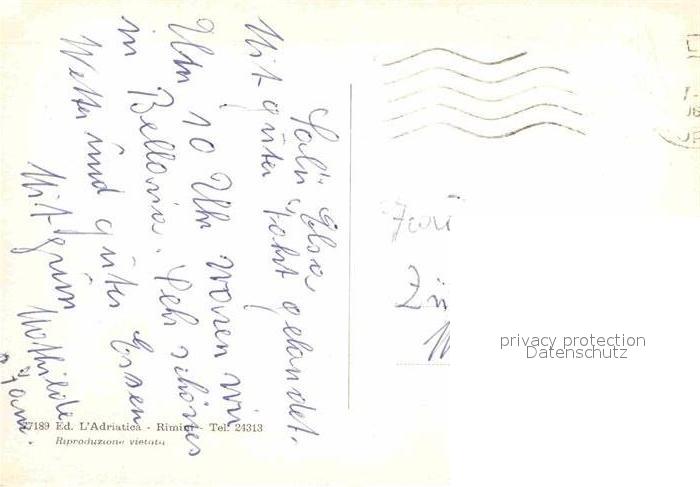 Salü Elsa
Mit guter Fahrt gelandet.
Um 10 Uhr waren wir
in Bellaria. Sehr schönes
Wetter und gutes Essen
Mit grüss Mathilde
Zü
privacy protection
Datenschutz
7189 Ed. L'Adriatica - Rimini - Tel. 24313
Riproduzione vietata